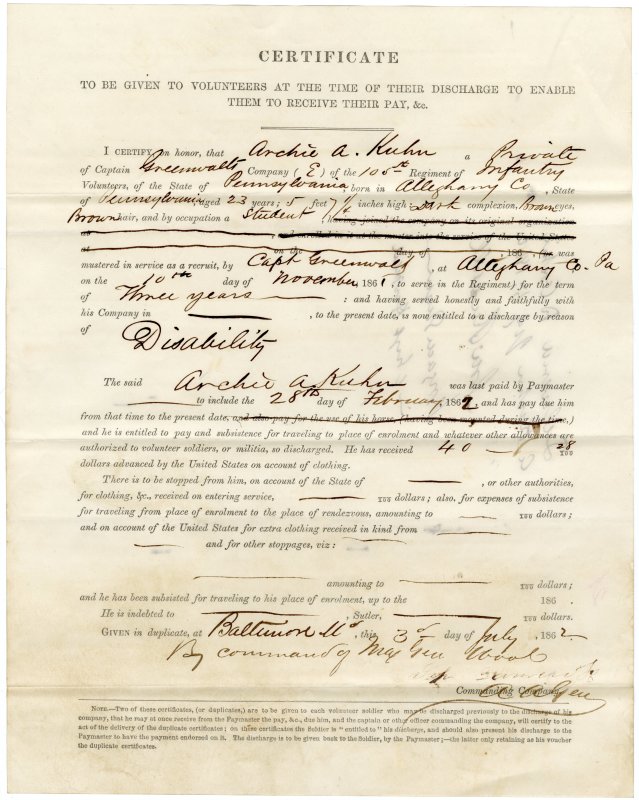 CERTIFICATE
TO BE GIVEN TO VOLUNTEERS AT THE TIME OF THEIR DISCHARGE TO ENABLE
THEM TO RECEIVE THEIR PAY, &c.
I CERTIFY, on honor, that Archie A. Kuhn a Private
of Captain Greenwalts Company (E) of the 105th Regiment of Infantry
Volunteers, of the State of Pennsylvania, born in Alleghany Co, State
of Pennsylvania aged 23 years; 5 feet 7½ inches high; Dark complexion, Brown eyes,
Brown hair, and by occupation a Student, having joined the company on its original organization
at and enrolled in it at the muster into the service of the United States
at on the day of , 186 , (or was
mustered in service as a recruit, by Capt Greenwald, at Alleghany Co. Pa
on the 10th day of November 1861, to serve in the Regiment) for the term
of Three years : and having served honestly and faithfully with
his Company in , to the present date, is now entitled to a discharge by reason
of Disability
The said Archie A. Kuhn was last paid by Paymaster
to include the 28th day of February, 1862, and has pay due him
from that time to the present date, and also pay for the use of his horse, (having been mounted during the time,)
and he is entitled to pay and subsistence for traveling to place of enrolment and whatever other allowances are
authorized to volunteer soldiers, or militia, so discharged. He has received 40 28/100
dollars advanced by the United States on account of clothing.
There is to be stopped from him, on account of the State of , or other authorities,
for clothing, &c., received on entering service, 100 dollars; also, for expenses of subsistence
for traveling from place of enrolment to the place of rendezvous, amounting to 100 dollars;
and on account of the United States for extra clothing received in kind from
and for other stoppages, viz:
amounting to 100 dollars;
and he has been subsisted for traveling to his place of enrolment, up to the 186 .
He is indebted to , Sutler, 100 dollars.
GIVEN in duplicate, at Baltimore Md, this 3d day of July, 1862
By command of Maj Gen Wool
Commanding Company.
NOTE.—Two of these certificates, (or duplicates,) are to be given to each volunteer soldier who may be discharged previously to the discharge of his
company, that he may at once receive from the Paymaster the pay, &c., due him, and the captain or other officer commanding the company, will certify to the
act of the delivery of the duplicate certificates; on these certificates the Soldier is "entitled to" his discharge, and should also present his discharge to the
Paymaster to have the payment endorsed on it. The discharge is to be given back to the Soldier, by the Paymaster;—the latter only retaining as his voucher
the duplicate certificates.